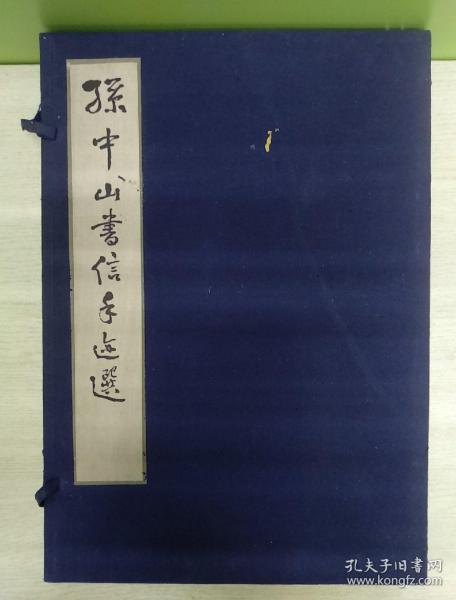 孫中山書信手迹選
孔夫子旧书网
www.kongfz.com